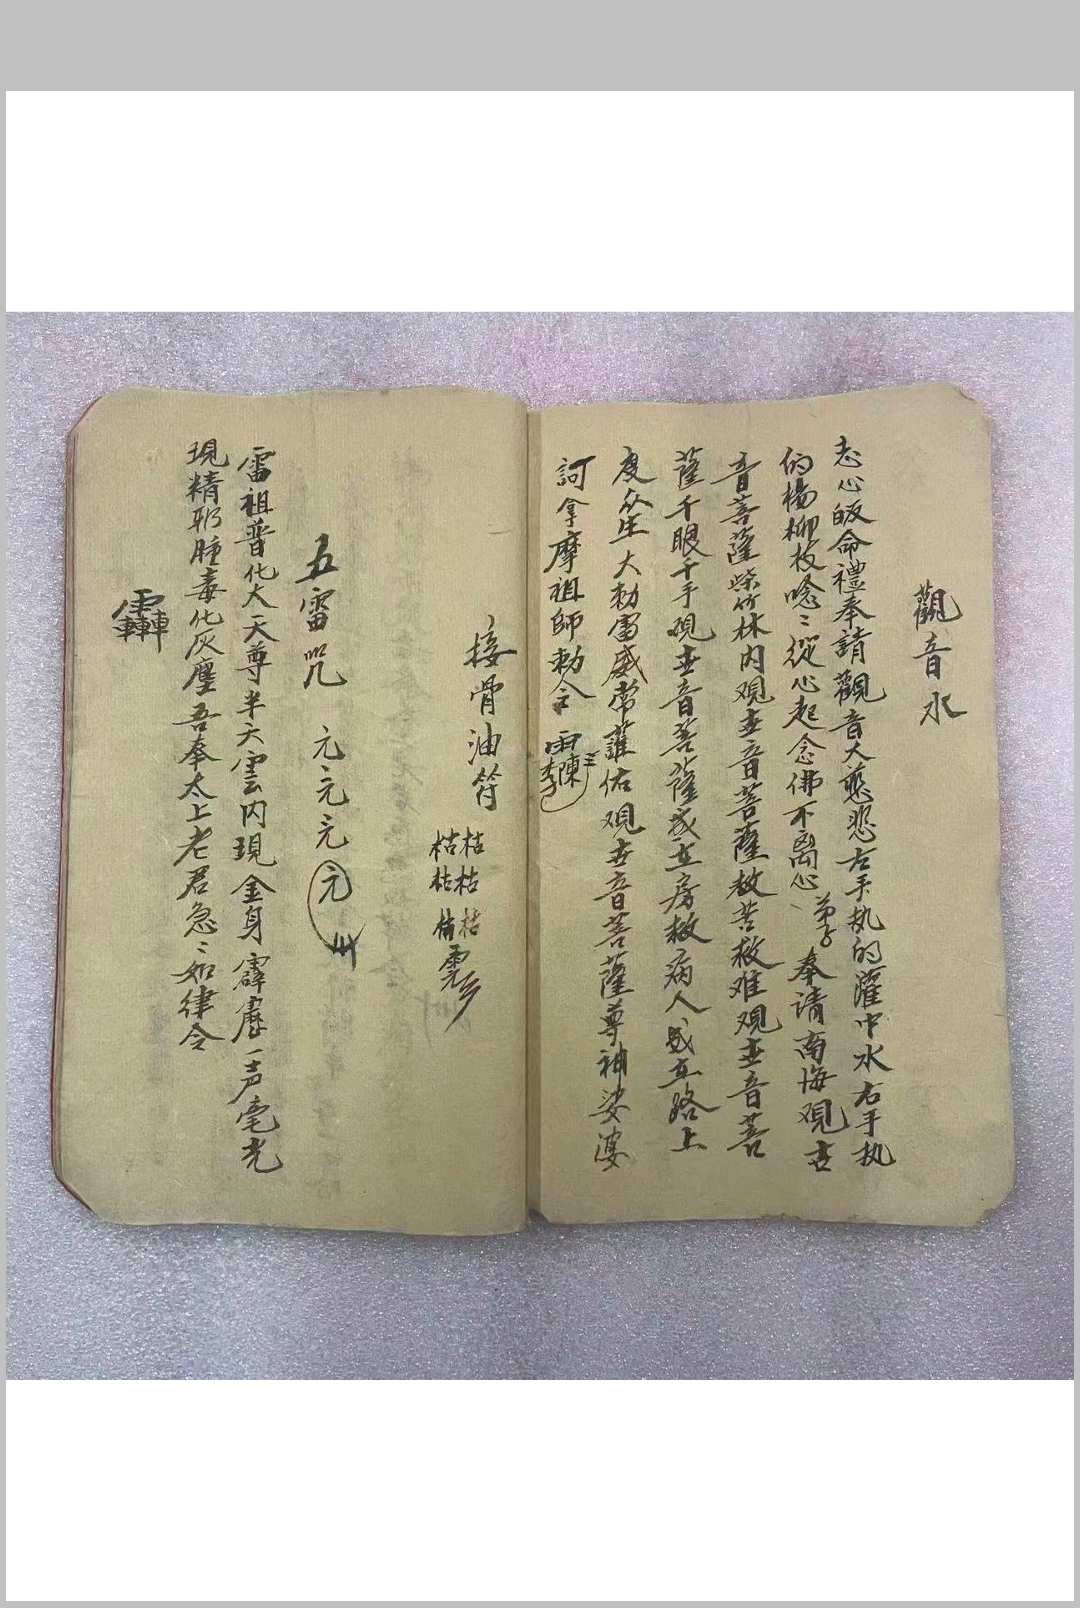 觀音水
志心皈命禮奉請觀音大慈悲左手执的灌中水右手执
的楊柳枝唸〻從心起念佛不离心弟子奉请南海观世
音菩薩柴竹林内观世音菩薩救苦救难观世音菩
薩千眼千手观世音菩薩或在房救病人或在路上
度众生大勅雷威常護佑观世音菩薩尊神娑婆
訶拿摩祖師勅令
接骨油符
枯枯
枯枯
枯枯
五雷咒 元元元元
雷祖普化大天尊半天雲内現金身霹靂一声毫光
現精邪腫毒化灰塵吾奉太上老君急〻如律令